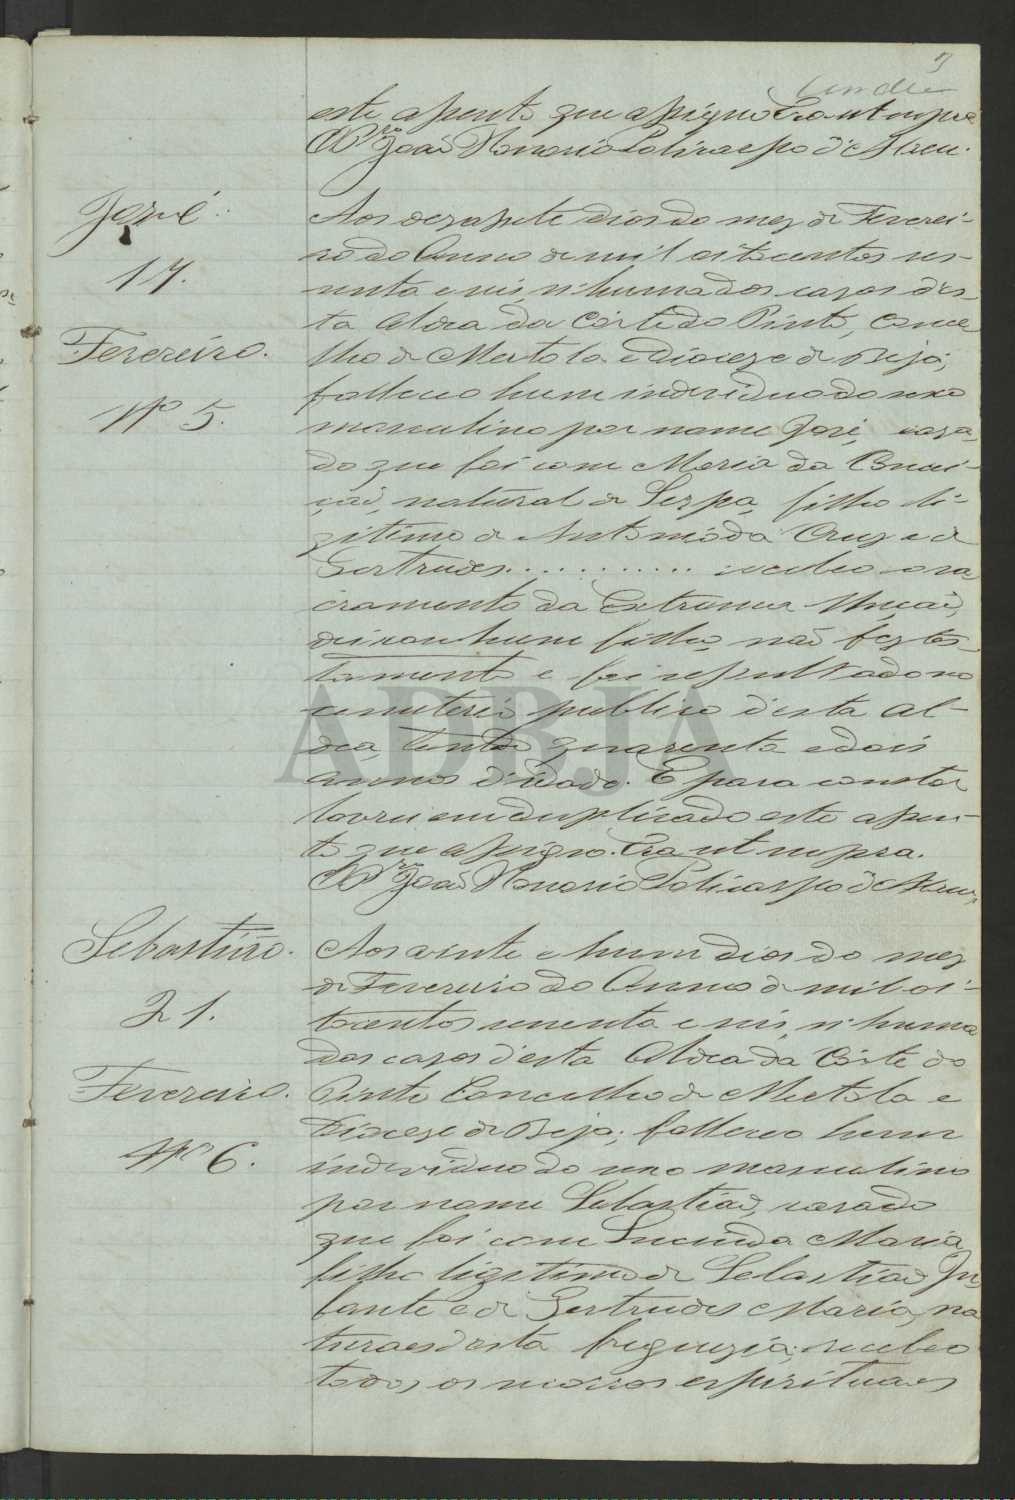 3
este assento que assigno. Era ut supra
O Prº João Honorio Policarpo d'Abreu.
José
17.
Fevereiro.
Nº 5.
Aos dezasete dias do mez de Feverei-
ro do Anno de mil oitocentos se-
senta e seis, n'huma das cazas des-
ta Aldea da Côrte do Pinto, Conce-
lho de Mertola e Dioceze de Beja,
falleceo hum individuo do sexo
masculino por nome José, caza-
do que foi com Maria da Concei-
ção, natural de Serpa, filho li-
gitimo de Antonio da Cruz e de
Gertrudes............ recebeo o sa-
cramento da Extrema Unção,
deixou hum filho, não fez tes-
tamento e foi sepultado no
cemiterio publico d'esta al-
dea, tendo quarenta e dois
annos d'idade. E para constar
lavrei em duplicado este assen-
to que assigno. Era ut supra.
O Prº João Honorio Policarpo d'Abreu.
Sebastião.
21.
Fevereiro.
Nº 6.
Aos vinte e hum dias do mez
de Fevereiro do Anno de mil oi-
tocentos sesenta e seis, n'huma
das cazas d'esta Aldea da Côrte do
Pinto Concelho de Mertola e
Dioceze de Beja; falleceo hum
individuo do sexo masculino
por nome Sebastião, casado
que foi com Lucinda Maria,
filho ligitimo de Sebastião In-
fante e de Gertrudes Maria, na-
turaes d'esta freguezia; recebeo
todos os socorros espirituaes
ADBJA